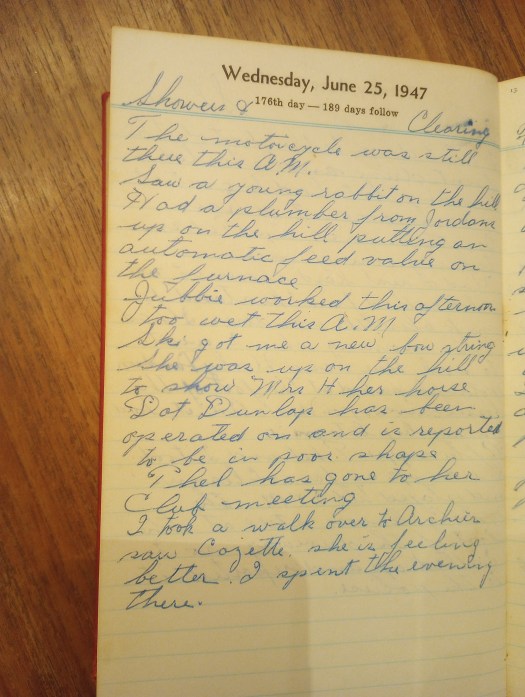 Wednesday, June 25, 1947
176th day — 189 days follow
Showers & Clearing
The motorcycle was still
there this A.M.
Saw a young rabbit on the hill
Had a plumber from Jordans
up on the hill putting an
automatic feed valve on
the furnace
Jubbie worked this afternoon
too wet this A.M
Ski got me a new bow string
she was up on the hill
to show Mrs H her horse
Dot Dunlap has been
operated on and is reported
to be in poor shape
Thel has gone to her
Club meeting
I took a walk over to Archies
saw Cozette. she is feeling
better. I spent the evening
there.